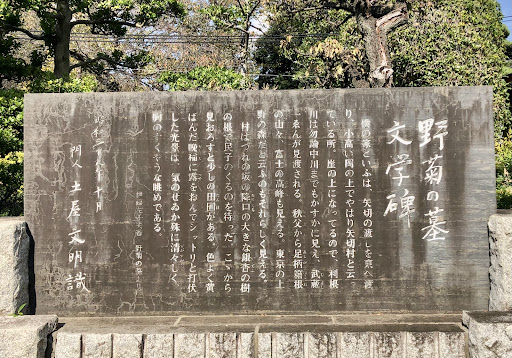 野菊の墓
文学碑
僕の家といふは、矢切の渡しを東へ渡
り、小高い岡の上でやはり矢切村と云
ている所。崖の上になってるので、利根
川は勿論中川までもかすかに見え、武蔵
一ゑんが見渡される。秩父から足柄箱根
の山々、富士の高峰も見える。東京の上
野の森だと云ふのもそれらしく見える。
村はづれの坂の降口の大きな銀杏の樹
の根で民子のくるのを待った。こゝから
見おろすと少しの田圃がある。色よく黄
ばんだ晩稲に露をおんで、シットリと打伏
した光景は、気のせゐか殊に清々しく、
胸のすくやうな眺めである。
門人 土屋文明識